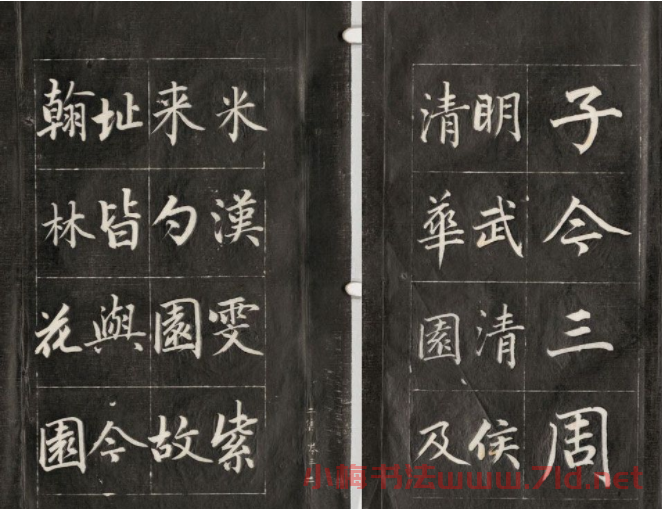 子今三周
明武清侯
清華園及
米漢雯紫
来勺園故
址皆與今
翰林花園
小梅书法www.7ld.net